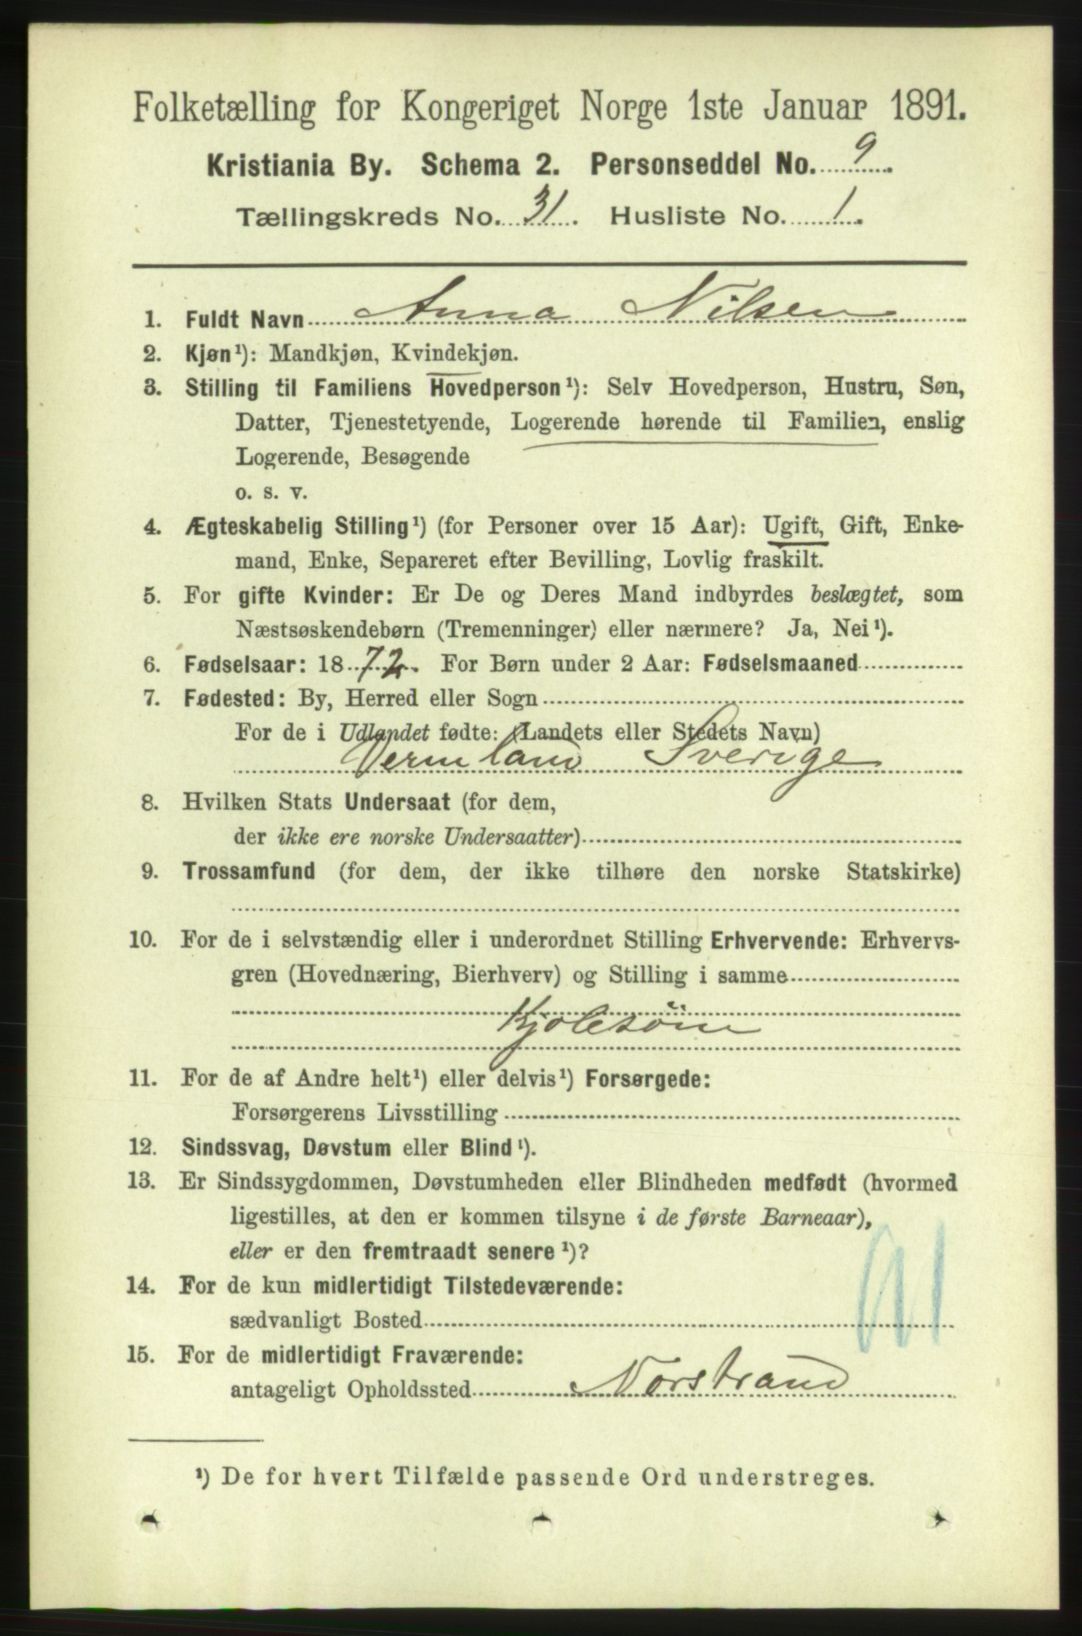 Folketælling for Kongeriget Norge 1ste Januar 1891.
Kristiania By. Schema 2. Personseddel No. 9.
Tællingskreds No. 31. Husliste No. 1.
1. Fuldt Navn Anna Nilsen
2. Kjøn¹): Mandkjøn, Kvindekjøn.
3. Stilling til Familiens Hovedperson¹): Selv Hovedperson, Hustru, Søn,
Datter, Tjenestetyende, Logerende hørende til Familien, enslig
Logerende, Besøgende
o. s. v.
4. Ægteskabelig Stilling¹) (for Personer over 15 Aar): Ugift, Gift, Enke-
mand, Enke, Separeret efter Bevilling, Lovlig fraskilt.
5. For gifte Kvinder: Er De og Deres Mand indbyrdes beslægtet, som
Næstsøskendebørn (Tremenninger) eller nærmere? Ja, Nei¹).
6. Fødselsaar: 1872. For Børn under 2 Aar: Fødselsmaaned
7. Fødested: By, Herred eller Sogn
For de i Udlandet fødte: (Landets eller Stedets Navn)
Vermland Sverige
8. Hvilken Stats Undersaat (for dem,
der ikke ere norske Undersaatter)
9. Trossamfund (for dem, der ikke tilhøre den norske Statskirke)
10. For de i selvstændig eller i underordnet Stilling Erhvervende: Erhvervs-
gren (Hovednæring, Bierhverv) og Stilling i samme
Kjolesöm
11. For de af Andre helt¹) eller delvis¹) Forsørgede:
Forsørgerens Livsstilling
12. Sindssvag, Døvstum eller Blind¹).
13. Er Sindssygdommen, Døvstumheden eller Blindheden medfødt (hvormed
ligestilles, at den er kommen tilsyne i de første Barneaar),
eller er den fremtraadt senere¹)?
14. For de kun midlertidigt Tilstedeværende:
sædvanligt Bosted
15. For de midlertidigt Fraværende:
antageligt Opholdssted Norstrand
¹) De for hvert Tilfælde passende Ord understreges.